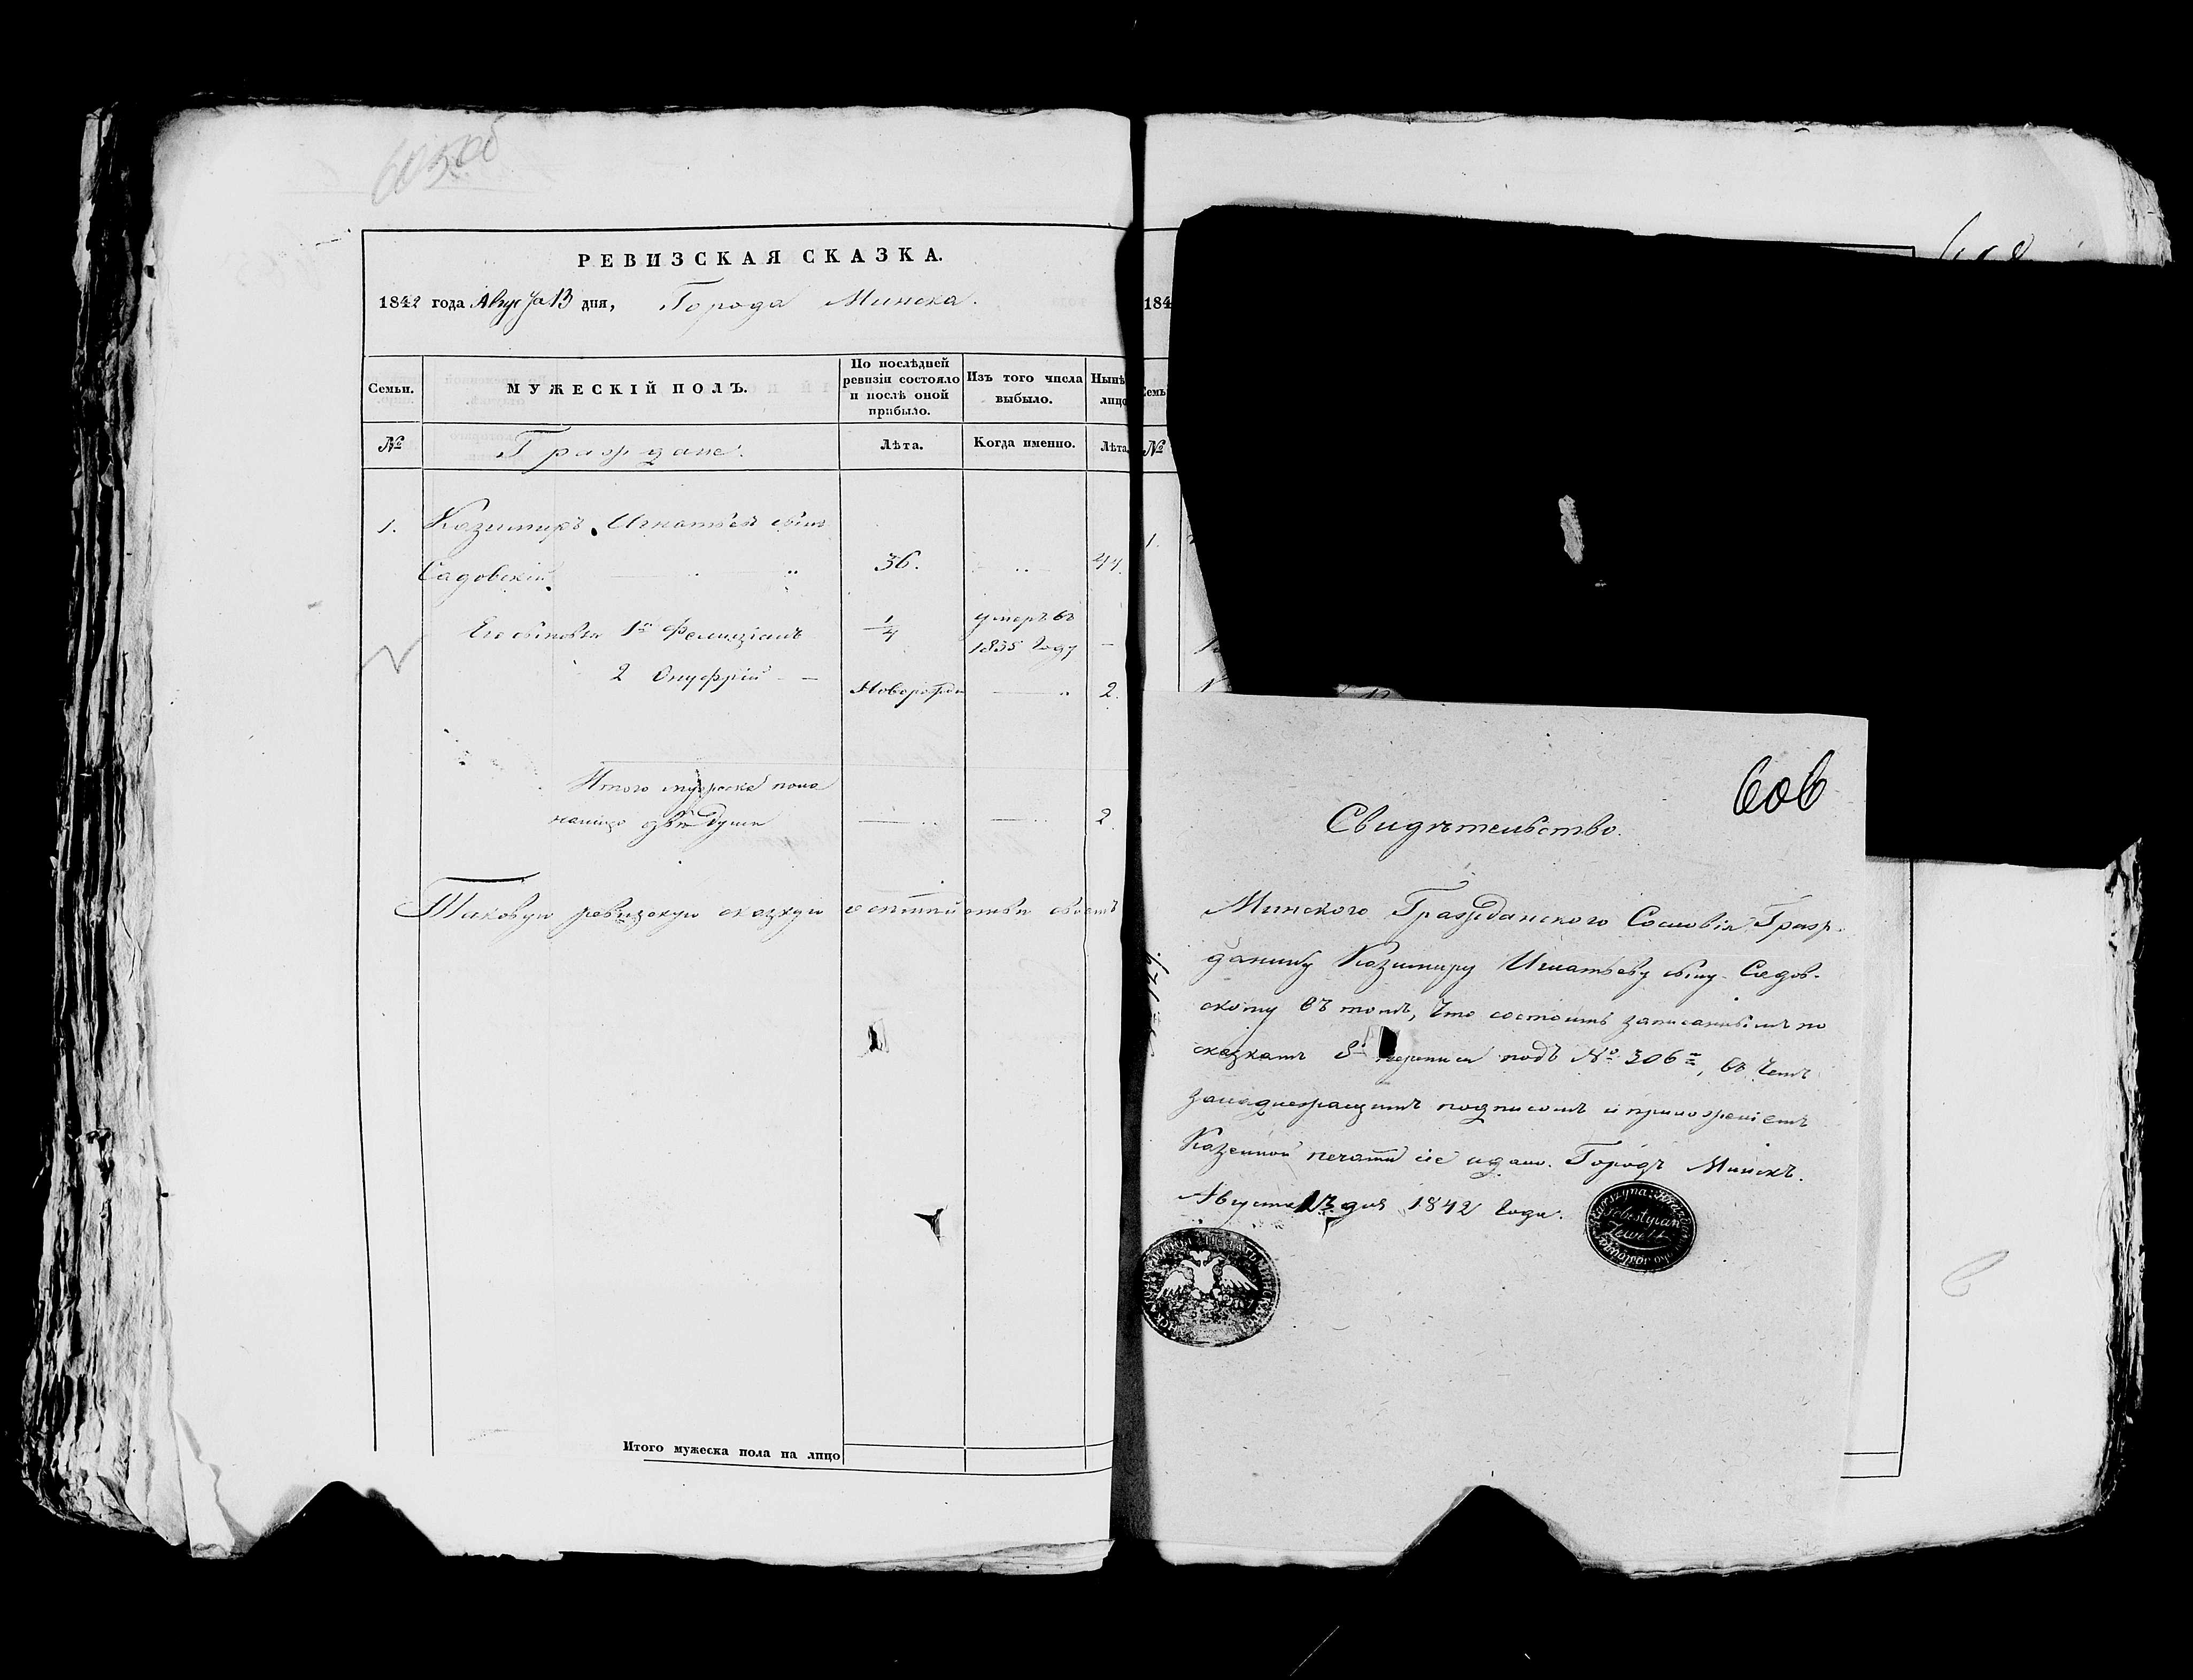 605об
РЕВИЗСКАЯ СКАЗКА.
1842 года Августа 13 дня, Города Минска.
Семьи.
МУЖЕСКІЙ ПОЛЪ.
По послѣдней
ревизіи состояло
и послѣ оной
прибыло.
Изъ того числа
выбыло.
Нынѣ
лицо
№
Граждане.
Лѣта.
Когда именно.
Лѣта.
1. Казимиръ Игнатьевъ сынъ
Садовскій 36. 44.
Его сыновья 1й Фелиціанъ 1/4 умеръ въ
1835 году
2 Онуфрій Новорожден 2.
Итого мужеска пола
налицо двѣ души 2.
Таковую ревизскую сказку
Итого мужеска пола на лицо
184
Семь
№
1.
606
Свидѣтельство.
Минского Гражданского Сословія Граж-
данину Казимиру Игнатьеву сыну Садов-
скому въ томъ, что состоитъ записаннымъ по
сказкамъ 8й переписи подъ № 306м, въ чемъ
занадлежащимъ подписомъ и приложеніемъ
Казенной печати сіе идано. Городъ Минскъ.
Августа 13 дня 1842 года.